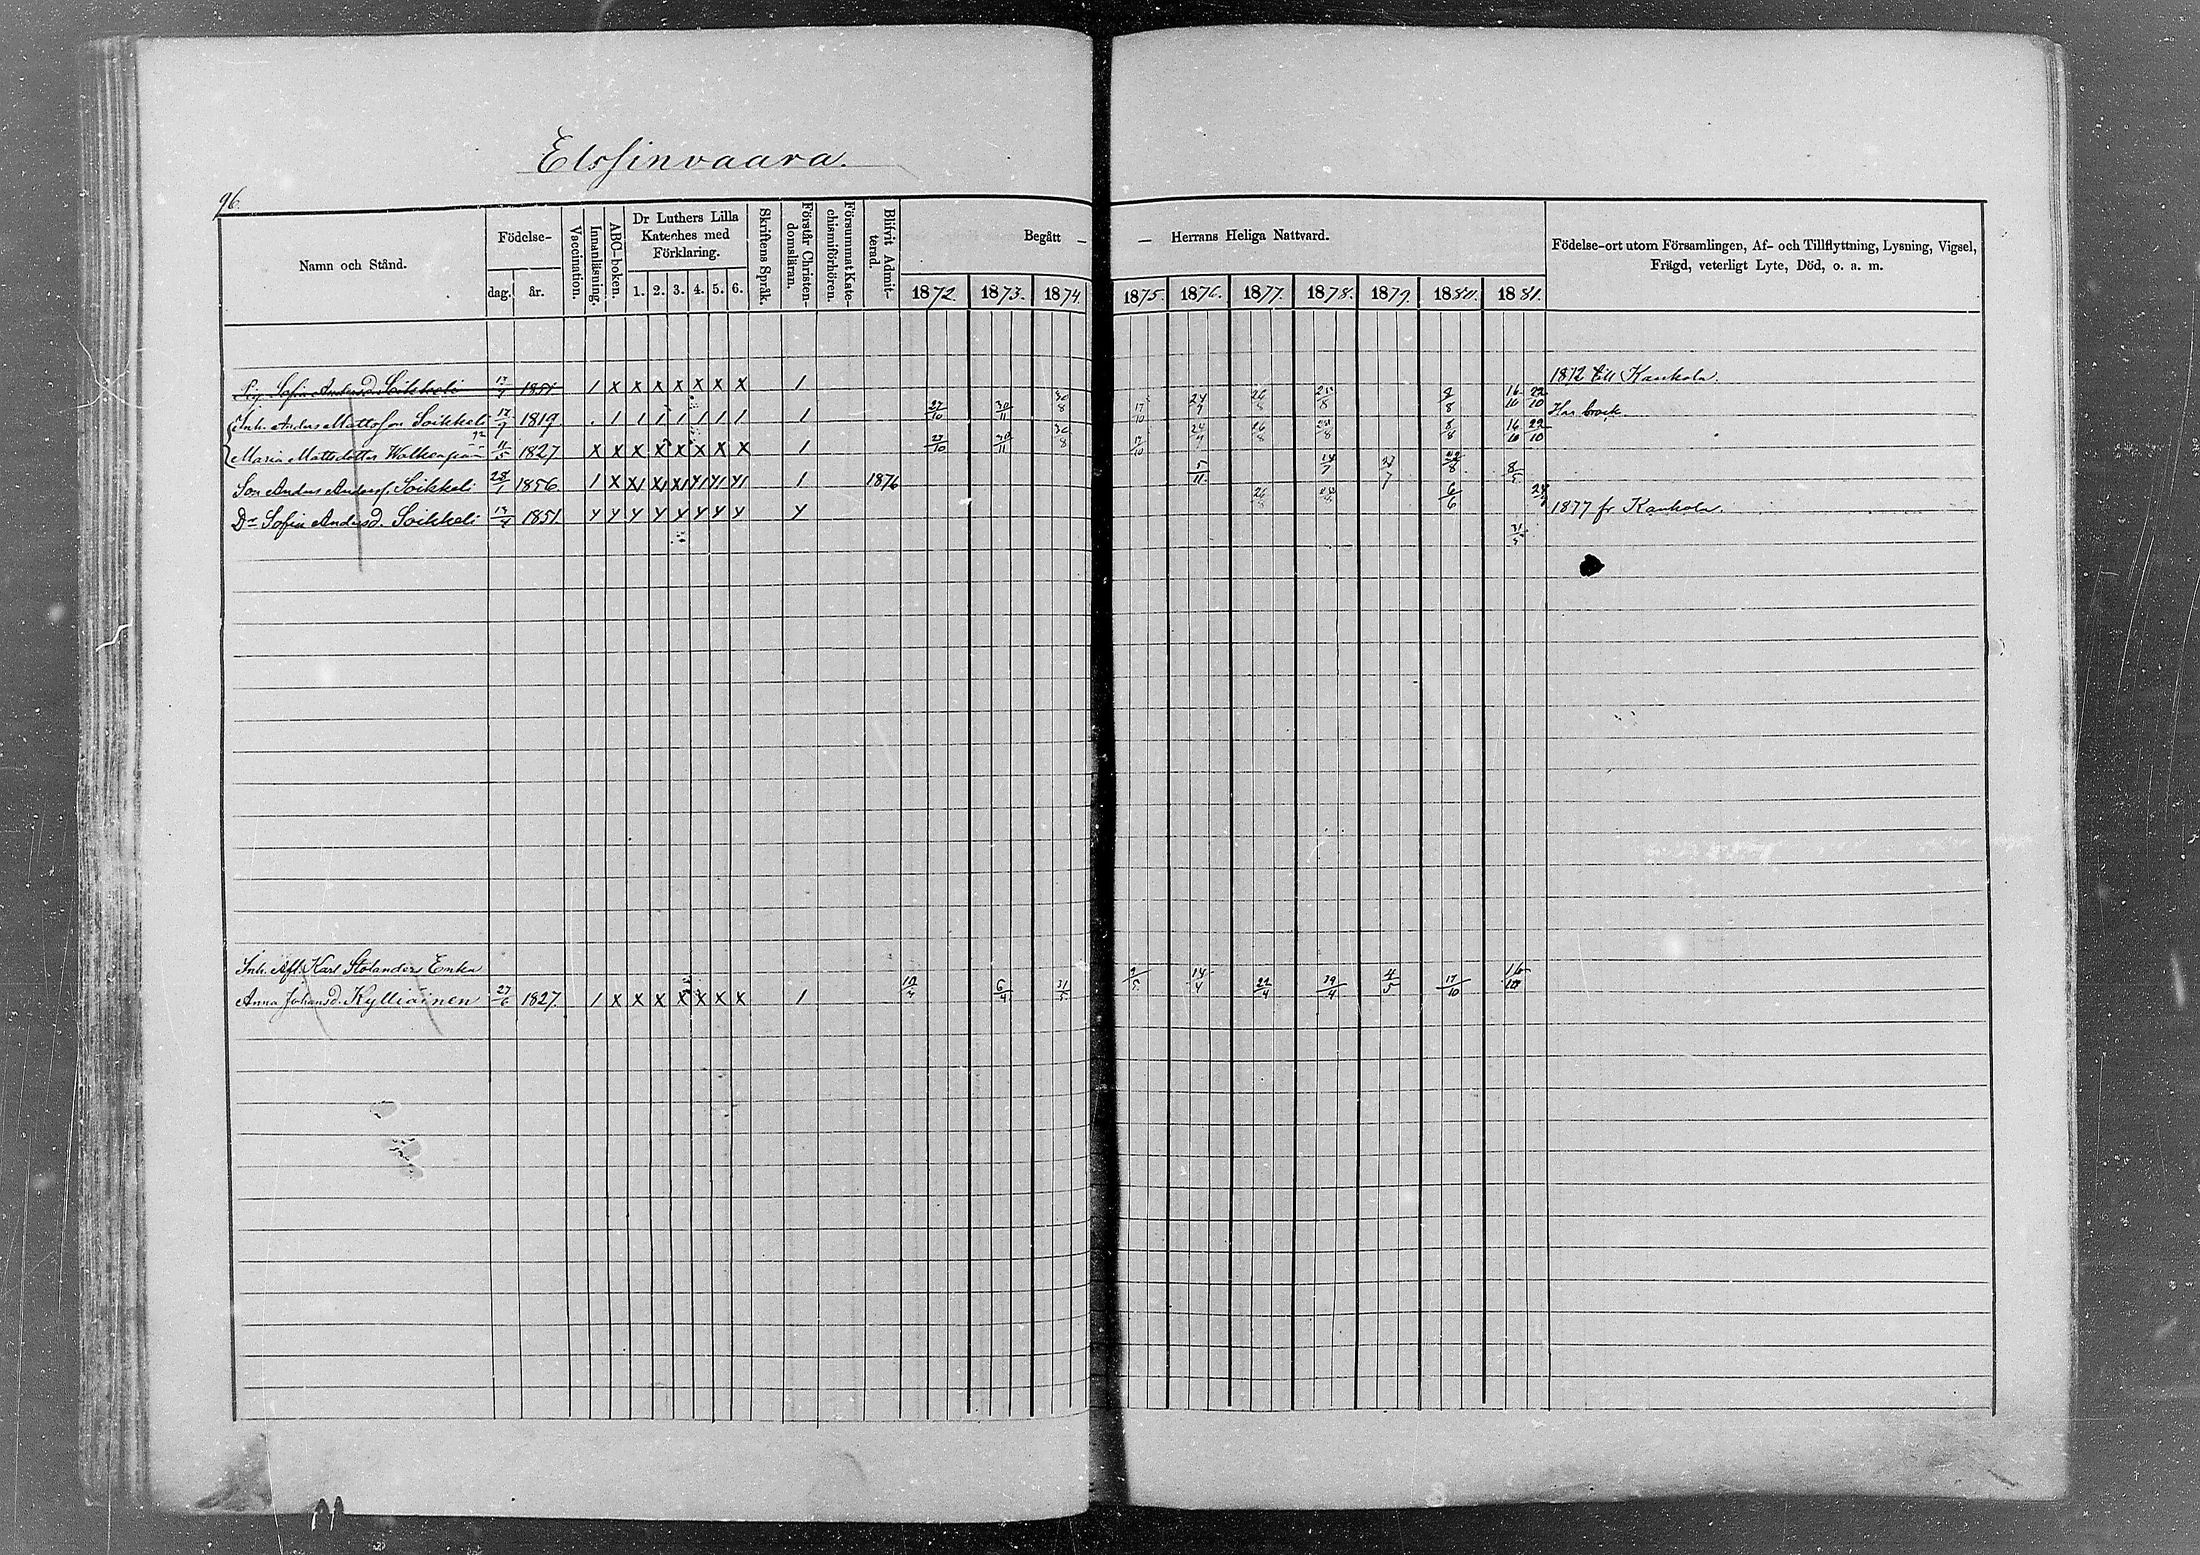 Elssinvaara.
96.
Namn och Stånd.
Födelse-
dag. år.
Vaccination.
Innanläsning.
ABC-boken.
Dr Luthers Lilla
Kateches med
Förklaring.
1. 2. 3. 4. 5. 6.
Skriftens Språk.
Förstår Christen-
domsläran.
Försummat Kate-
chismiförhören.
Blifvit Admit-
terad.
Begått — — Herrans Heliga Nattvard.
1872. 1873. 1874. 1875. 1876. 1877. 1878. 1879. 1880. 1881.
Födelse-ort utom Församlingen, Af- och Tillflyttning, Lysning, Vigsel,
Frägd, veterligt Lyte, Död, o. a. m.
Pig. Sofia Andersd. Soikkeli 1851 1 x x x x x x x 1 1872 till Kaukola.
Inh. Anders Mattsson Soikkeli 1819 . 1 1 1 1 1 1 1 1 27/10 30/11 30/8 17/10 24/9 26/8 25/8 8/8 16/10 22/10 Har brock.
Maria Mattsdotter 11/5 1827 x x x x x x x x 1 27/10 30/11 30/8 17/10 24/9 26/8 25/8 8/8 16/10 22/10
Son Anders Anders. Soikkeli 1856 1 1876 5/11 8/5
Dr Sofia Andersd. Soikkeli 1851 y y y y y y y y y 6/6 1877 fr Kaukola.
31/5
Inh. Afl. Karl Stolanders Enka
Anna Johansd. Kylliäinen 27/6 1827. 1 x x x x x x x 1 6/4 31/5 14/4 22/4 4/5 17/10 16/10